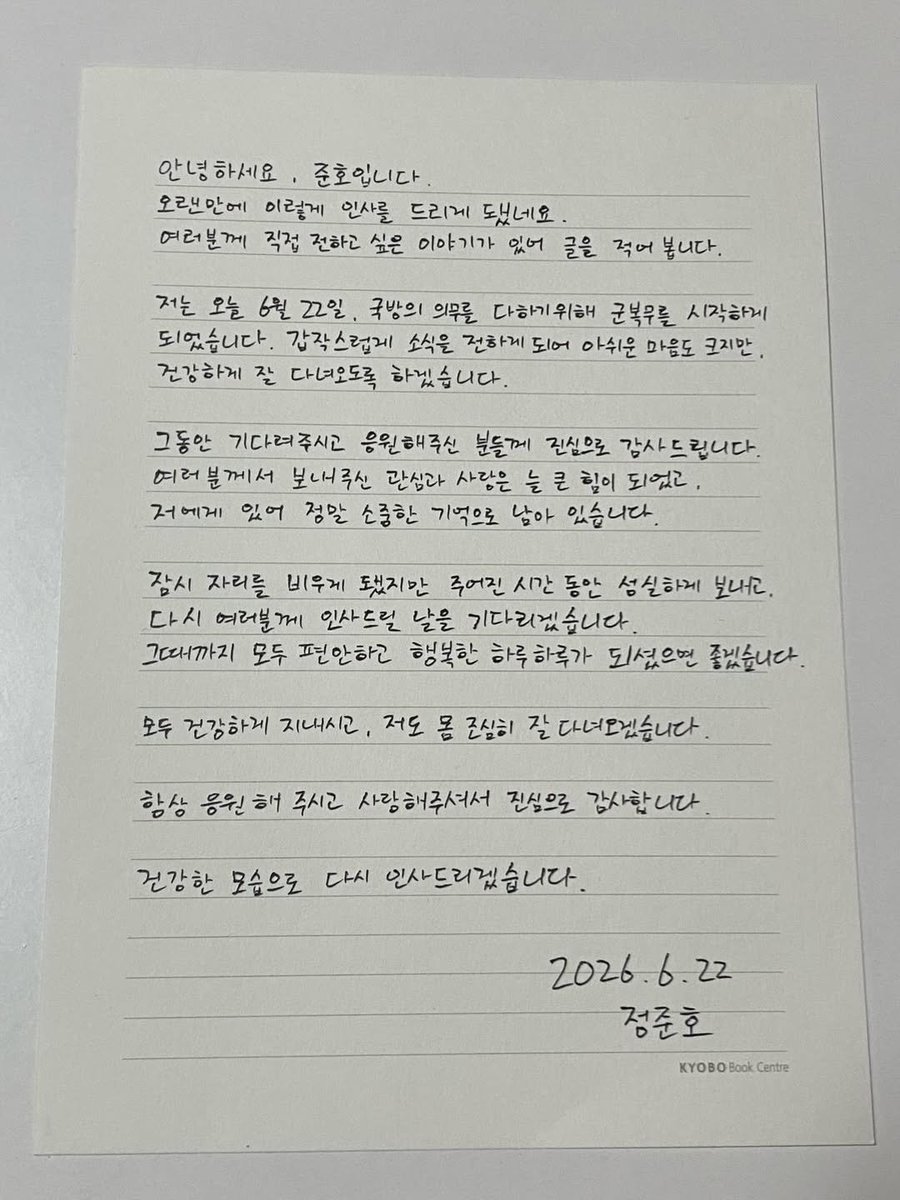 안녕하세요, 준호입니다.
오랜만에 이렇게 인사를 드리게 됐네요.
여러분께 직접 전하고 싶은 이야기가 있어 글을 적어 봅니다.
저는 오늘 6월 22일, 국방의 의무를 다하기위해 군복무를 시작하게
되었습니다. 갑작스럽게 소식을 전하게 되어 아쉬운 마음도 크지만,
건강하게 잘 다녀오도록 하겠습니다.
그동안 기다려주시고 응원해주신 분들께 진심으로 감사드립니다.
여러분께서 보내주신 관심과 사랑은 늘 큰 힘이 되었고,
저에게 있어 정말 소중한 기억으로 남아 있습니다.
잠시 자리를 비우게 됐지만 주어진 시간 동안 성실하게 보내고,
다시 여러분께 인사드릴 날을 기다리겠습니다.
그때까지 모두 편안하고 행복한 하루하루가 되셨으면 좋겠습니다.
모두 건강하게 지내시고, 저도 몸 조심히 잘 다녀오겠습니다.
항상 응원해 주시고 사랑해주셔서 진심으로 감사합니다.
건강한 모습으로 다시 인사드리겠습니다.
2026.6.22
정준호
KYOBO Book Centre